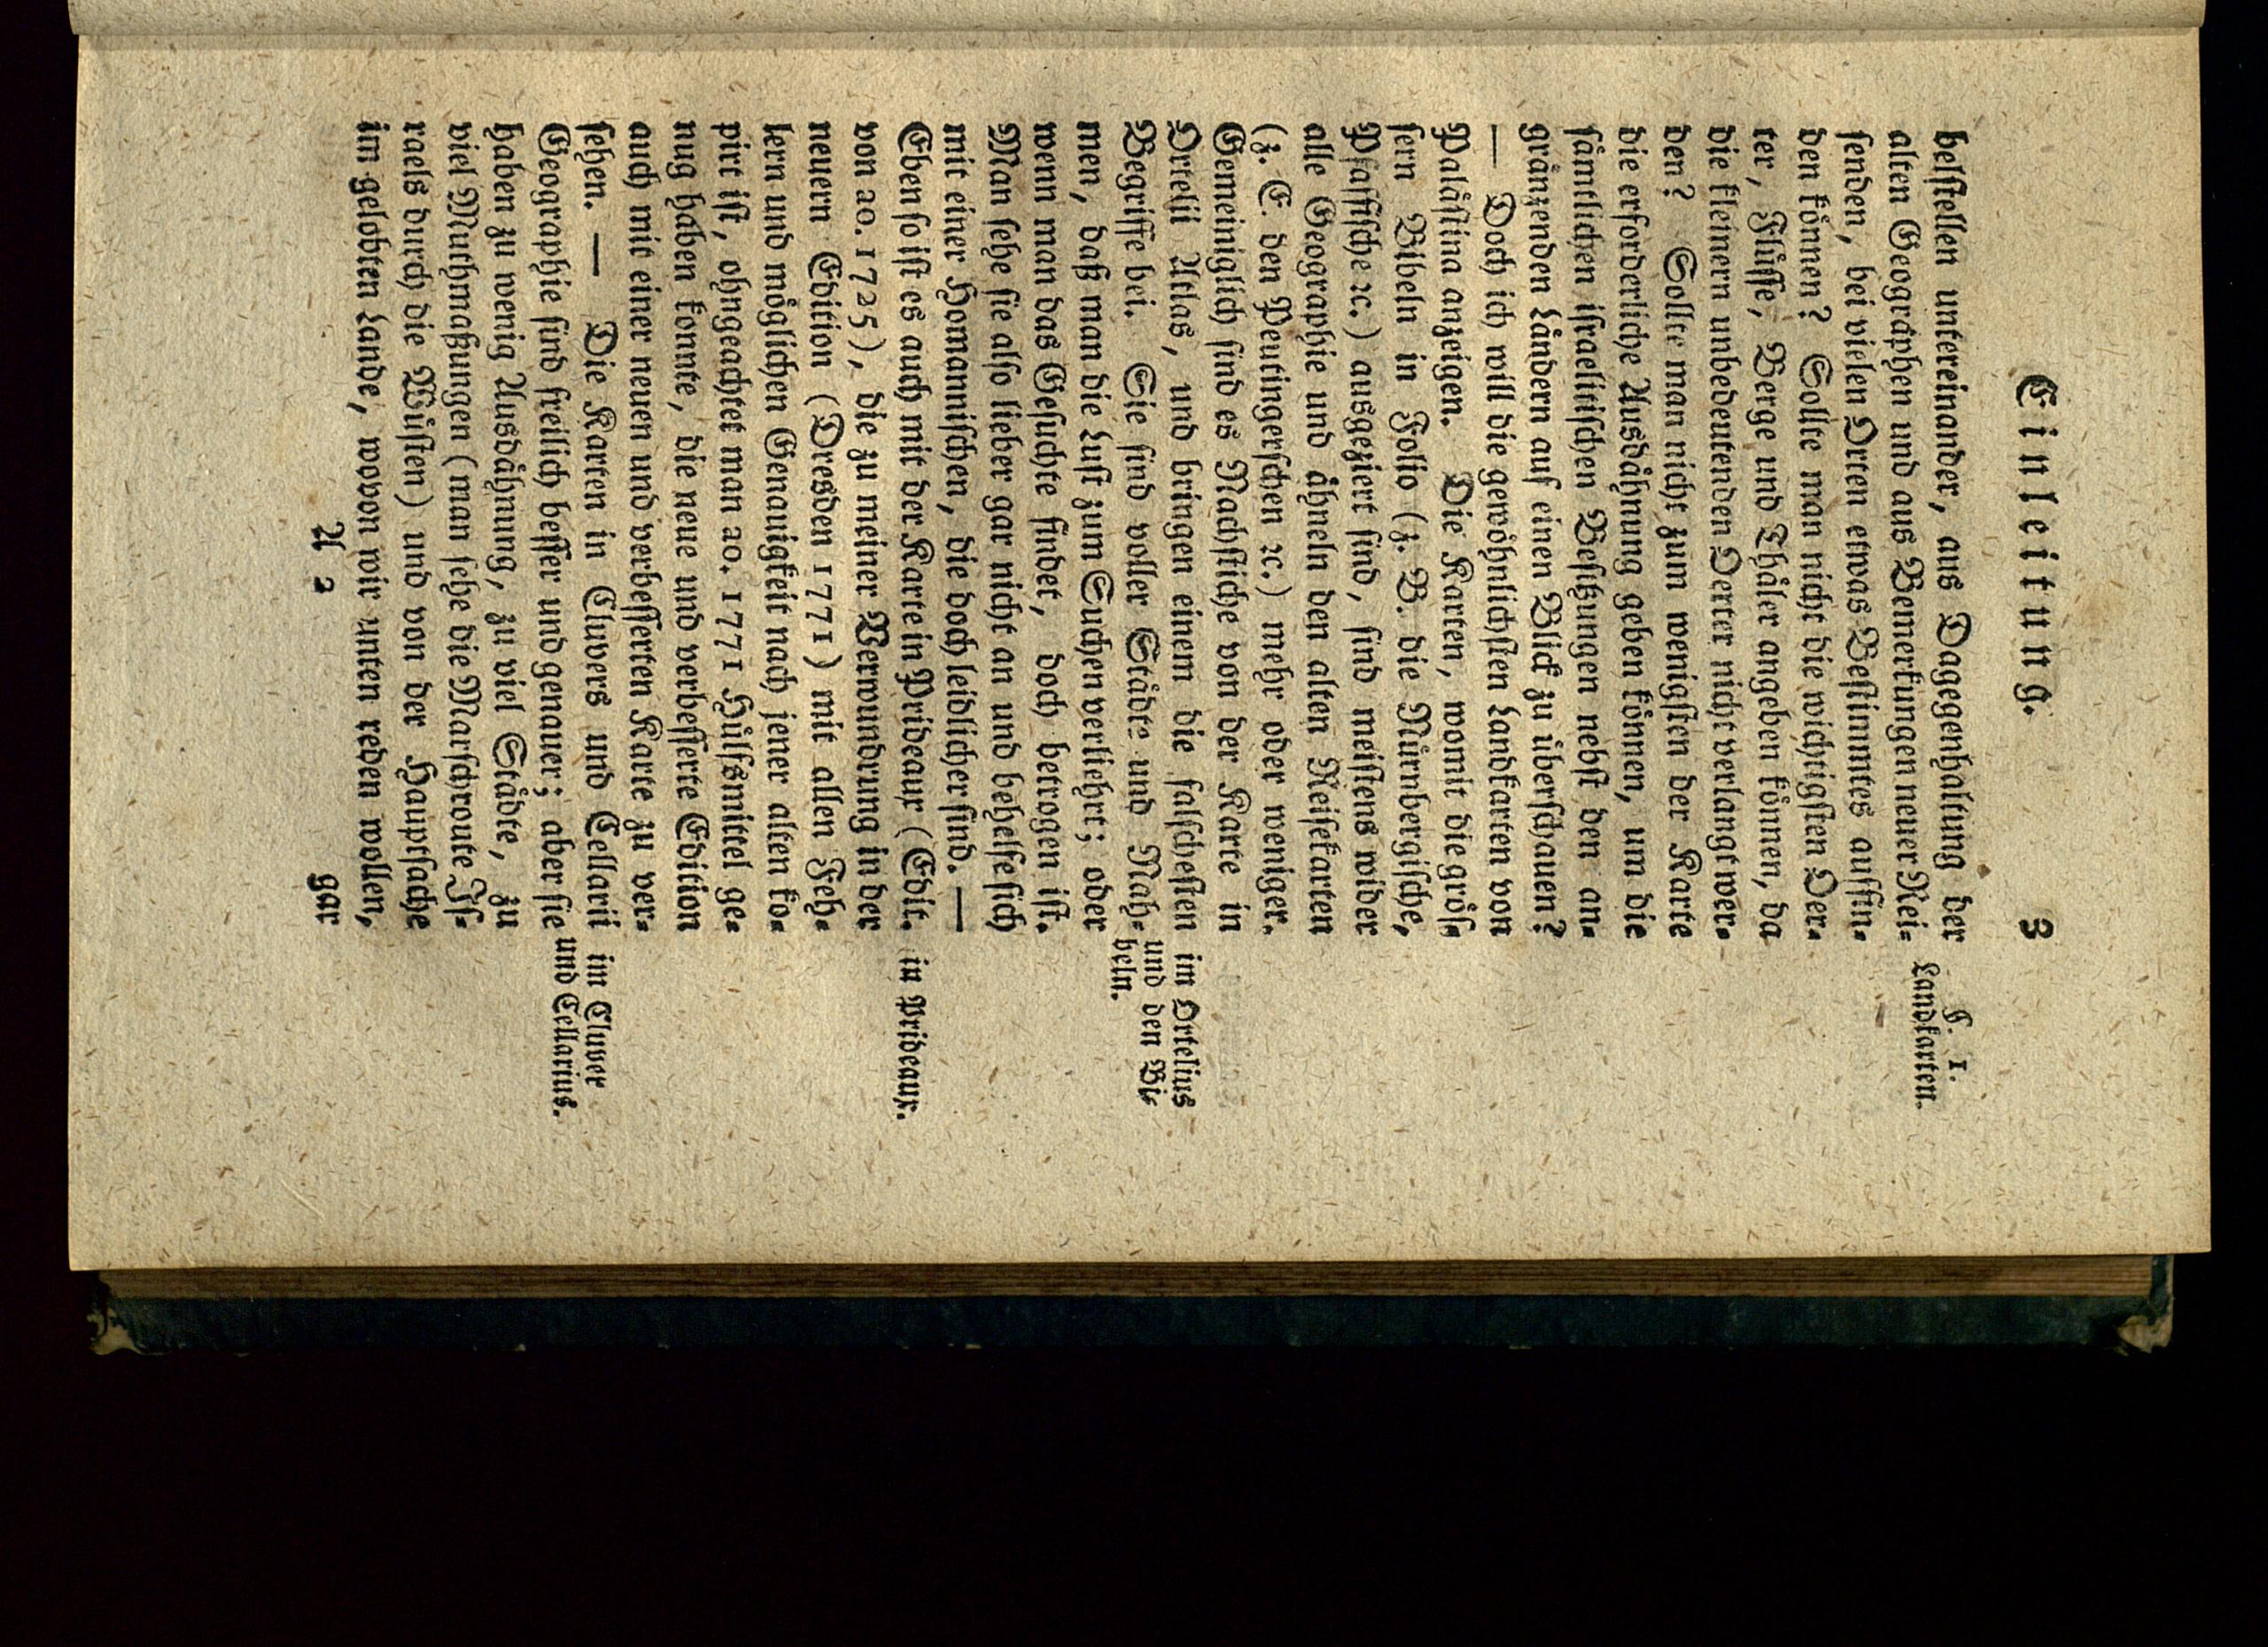 Einleitung. 3
belſtellen untereinander, aus Dagegenhaltung der
§. 1.
Landkarten.
alten Geographen und aus Bemerkungen neuer Rei-
ſenden, bei vielen Orten etwas Beſtimmtes auffin-
den können? Sollte man nicht die wichtigſten Oer-
ter, Flüſſe, Berge und Thäler angeben können, da
die kleinern unbedeutenden Oerter nicht verlangt wer-
den? Sollte man nicht zum wenigſten der Karte
die erforderliche Ausdähnung geben können, um die
ſämtlichen iſraelitiſchen Beſitzungen nebſt den an-
gränzenden Ländern auf einen Blick zu überſchauen?
— Doch ich will die gewöhnlichſten Landkarten von
Paläſtina anzeigen. Die Karten, womit die gröſ-
ſern Bibeln in Folio (z. B. die Nürnbergiſche,
Pfaffiſche ꝛc.) ausgeziert ſind, ſind meiſtens wider
alle Geographie und ähneln den alten Reiſekarten
(z. E. den Peutingerſchen ꝛc.) mehr oder weniger.
Gemeiniglich ſind es Nachſtiche von der Karte in
Ortelii Atlas, und bringen einem die falſcheſten
im Ortelius
und den Bi-
beln.
Begriffe bei. Sie ſind voller Städte und Nah-
men, daß man die Luſt zum Suchen verliehrt; oder
wenn man das Geſuchte findet, doch betrogen iſt.
Man ſehe ſie alſo lieber gar nicht an und behelfe ſich
mit einer Homanniſchen, die doch leidlicher ſind. —
Eben ſo iſt es auch mit der Karte in Prideaux (Edit.
in Prideaux.
von ao. 1725), die zu meiner Verwundrung in der
neuern Edition (Dresden 1771) mit allen Feh-
lern und möglichen Genauigkeit nach jener alten ko-
pirt iſt, ohngeachtet man ao. 1771 Hülfsmittel ge-
nug haben konnte, die neue und verbeſſerte Edition
auch mit einer neuen und verbeſſerten Karte zu ver-
ſehen. — Die Karten in Cluvers und Cellarii
im Cluver
und Cellarius.
Geographie ſind freilich beſſer und genauer; aber ſie
haben zu wenig Ausdähnung, zu viel Städte, zu
viel Muthmaßungen (man ſehe die Marſchroute Iſ-
raels durch die Wüſten) und von der Hauptſache
im gelobten Lande, wovon wir unten reden wollen,
A 2 gar